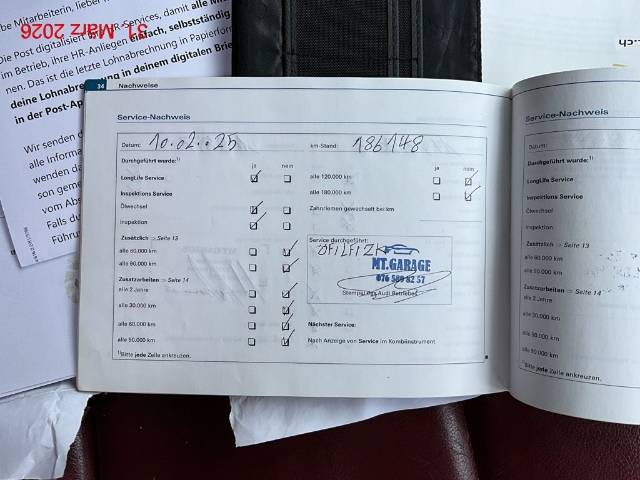 be Mitarbeiterin, lieber
Die Post digitalisiert
HR-Services, damit alle
im Betrieb, ihre HR-Anliegen einfach, selbstständig
nen. Das ist die letzte Lohnabrechnung in Papierform
deine Lohnabrechnung in deinem digitalen Brie
in der Post-Ap
Wir senden
alle Informa
wenden da
son geme
vom Abs
Falls du
Führu
31. März 2026
34 Nachweise
Service-Nachweis
Datum: 10.02.25 km-Stand: 186148
Durchgeführt wurde:¹⁾ ja nein ja nein
LongLife Service alle 120.000 km
Inspektions Service alle 180.000 km
Ölwechsel Zahnriemen gewechselt bei km
Inspektion
Zusätzlich ⇒ Seite 13
alle 60.000 km
alle 90.000 km
Zusatzarbeiten ⇒ Seite 14
alle 2 Jahre
alle 30.000 km
alle 60.000 km
alle 90.000 km
¹⁾Bitte jede Zeile ankreuzen.
Service durchgeführt:
MT.GARAGE
076 589 82 57
Stempel des Audi Betriebes
Nächster Service:
Nach Anzeige von Service im Kombiinstrument
Service-Nachweis
Datum:
Durchgeführt wurde:¹⁾
LongLife Service
Inspektions Service
Ölwechsel
Inspektion
Zusätzlich ⇒ Seite 13
alle 60.000 km
alle 90.000 km
Zusatzarbeiten ⇒ Seite 14
alle 2 Jahre
alle 30.000 km
alle 60.000 km
alle 90.000 km
¹⁾Bitte jede Zeile ankreuzen.